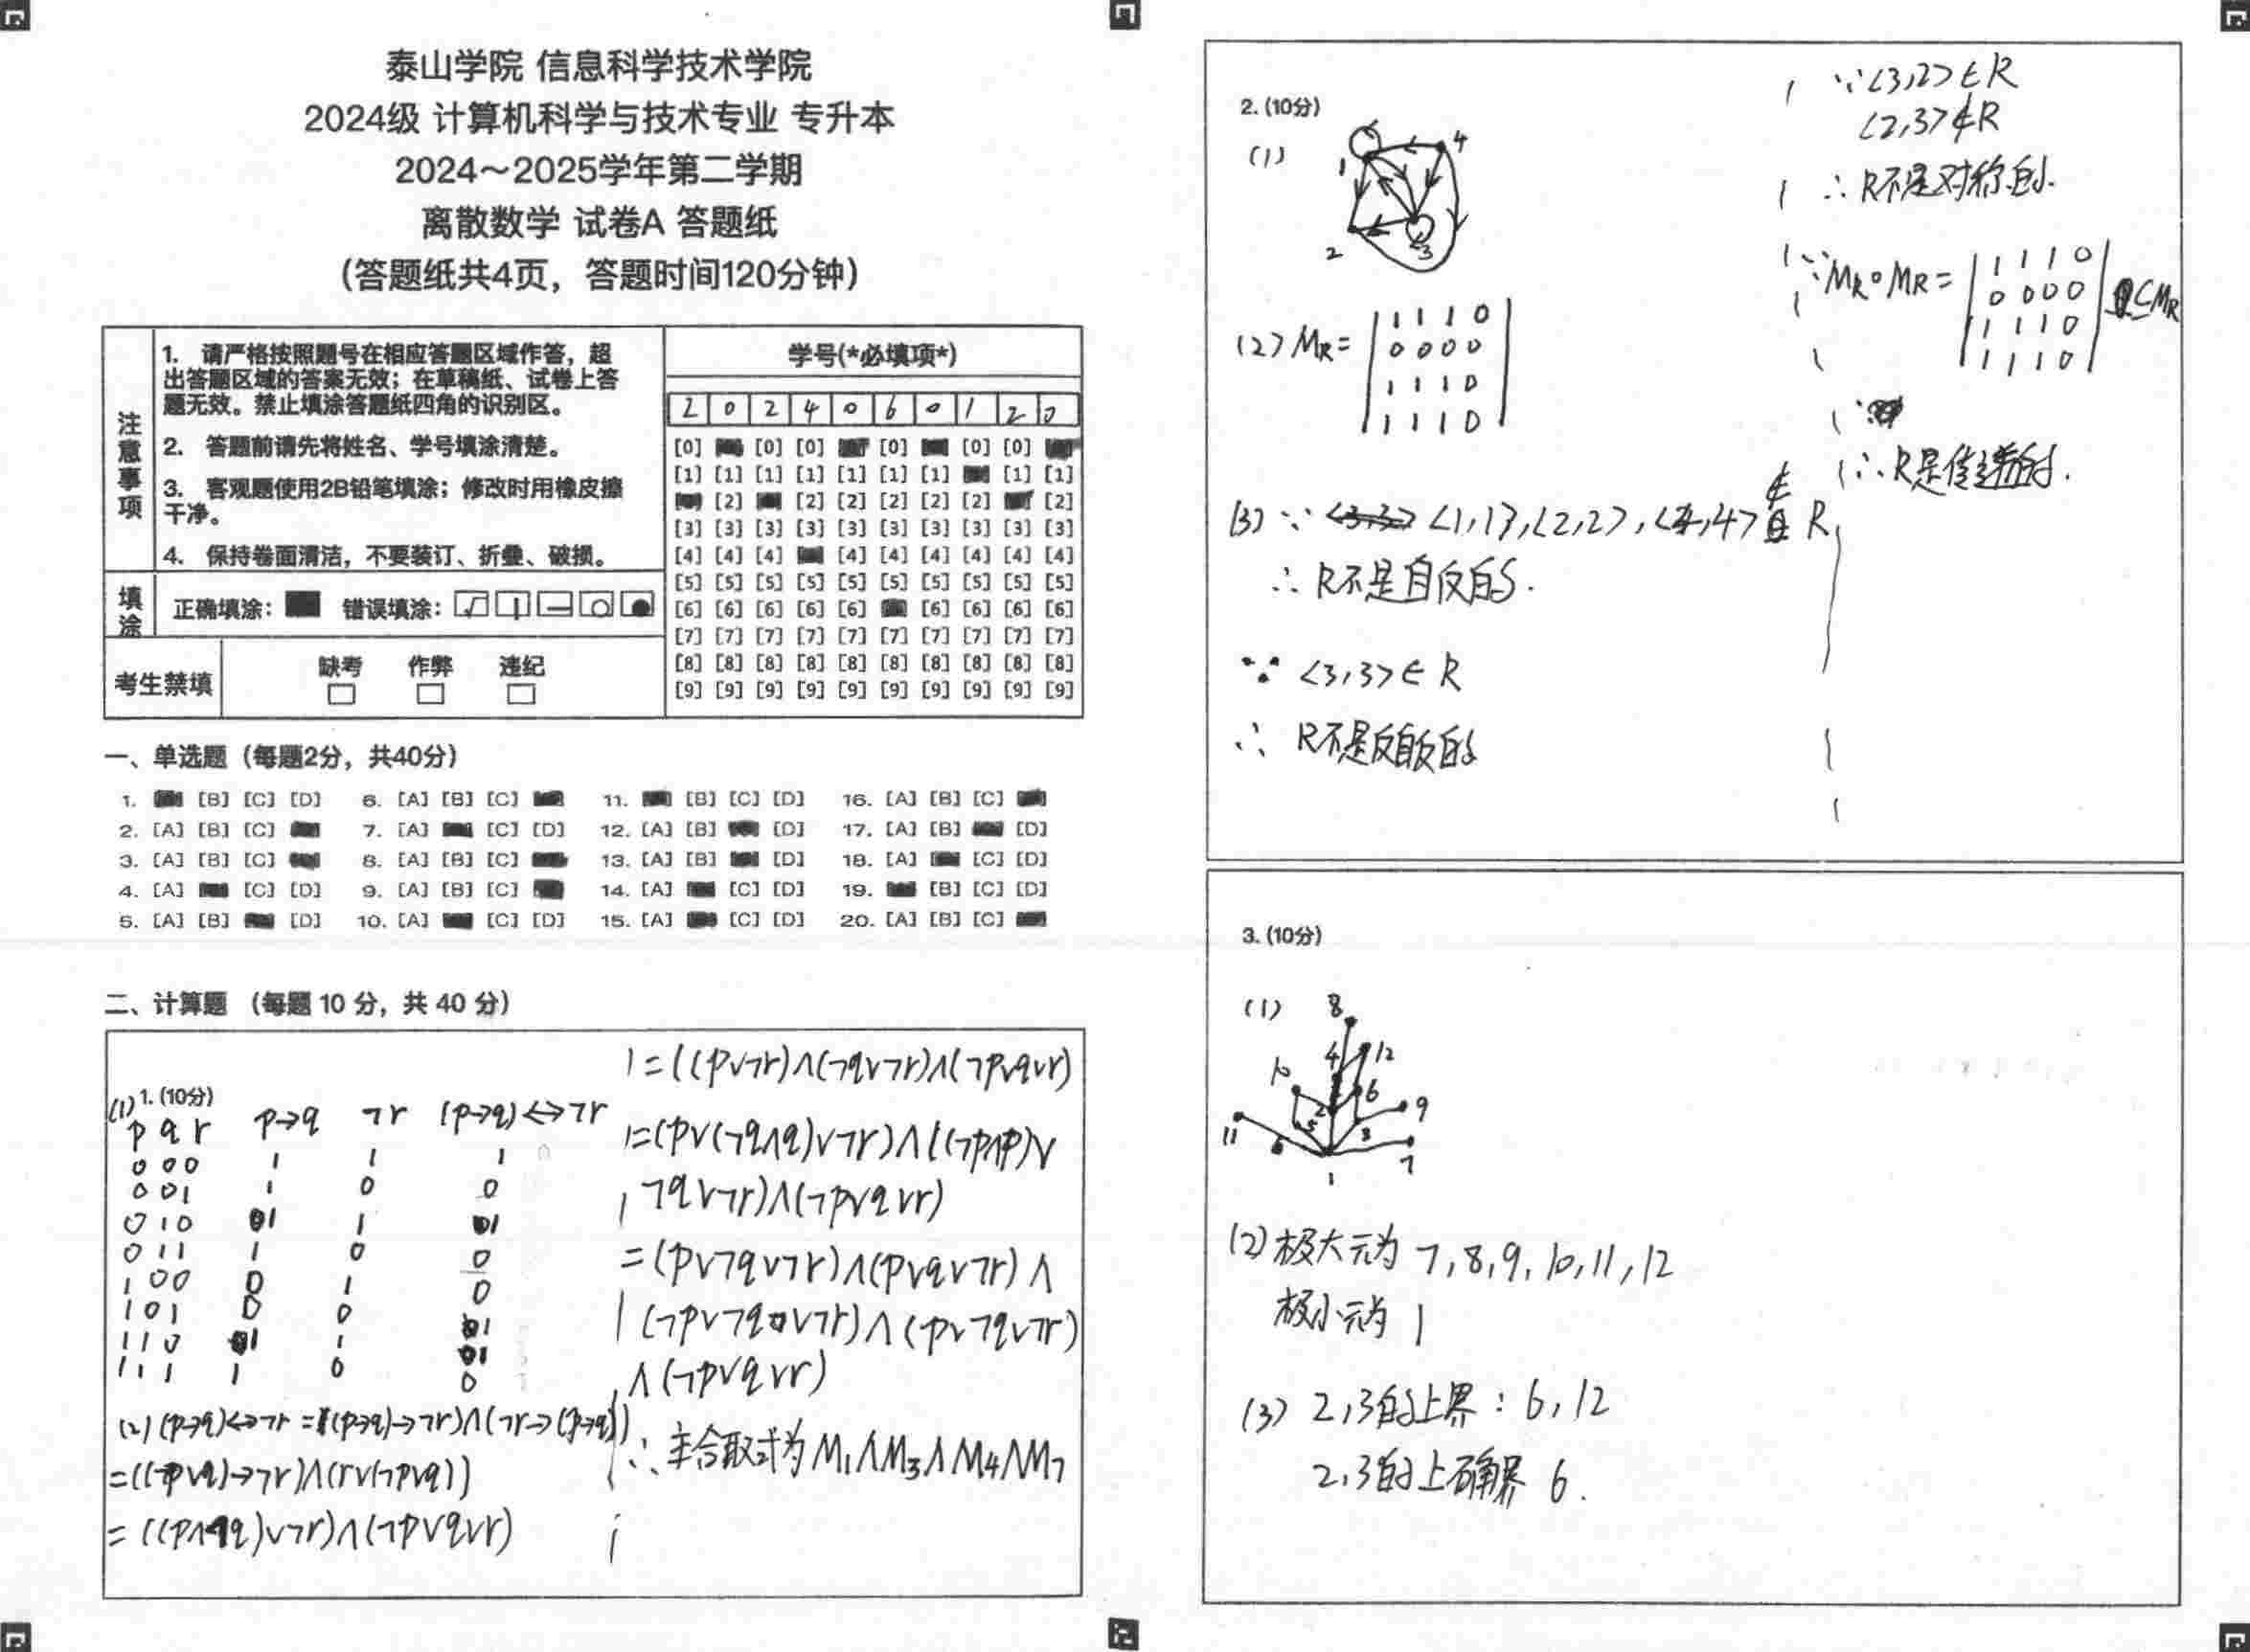 泰山学院 信息科学技术学院
2024级 计算机科学与技术专业 专升本
2024～2025学年第二学期
离散数学 试卷A 答题纸
(答题纸共4页，答题时间120分钟)
注意事项
1. 请严格按照题号在相应答题区域作答，超
出答题区域的答案无效；在草稿纸、试卷上答
题无效。禁止填涂答题纸四角的识别区。
2. 答题前请先将姓名、学号填涂清楚。
3. 客观题使用2B铅笔填涂；修改时用橡皮擦
干净。
4. 保持卷面清洁，不要装订、折叠、破损。
填涂
正确填涂： 错误填涂：
考生禁填
缺考 作弊 违纪
学号(*必填项*)
2 0 2 4 0 6 0 1 2 0
[0] [0] [0] [0] [0] [0]
[1] [1] [1] [1] [1] [1] [1] [1] [1]
[2] [2] [2] [2] [2] [2] [2]
[3] [3] [3] [3] [3] [3] [3] [3] [3] [3]
[4] [4] [4] [4] [4] [4] [4] [4] [4]
[5] [5] [5] [5] [5] [5] [5] [5] [5] [5]
[6] [6] [6] [6] [6] [6] [6] [6] [6]
[7] [7] [7] [7] [7] [7] [7] [7] [7] [7]
[8] [8] [8] [8] [8] [8] [8] [8] [8] [8]
[9] [9] [9] [9] [9] [9] [9] [9] [9] [9]
一、单选题（每题2分，共40分）
1. [B] [C] [D] 6. [A] [B] [C] 11. [B] [C] [D] 16. [A] [B] [C]
2. [A] [B] [C] 7. [A] [C] [D] 12. [A] [B] [D] 17. [A] [B] [D]
3. [A] [B] [C] 8. [A] [B] [C] 13. [A] [B] [D] 18. [A] [C] [D]
4. [A] [C] [D] 9. [A] [B] [C] 14. [A] [C] [D] 19. [B] [C] [D]
5. [A] [B] [D] 10. [A] [C] [D] 15. [A] [C] [D] 20. [A] [B] [C]
二、计算题 （每题 10 分，共 40 分）
1. (10分)
(1)
p q r p→q ¬r (p→q)↔¬r
0 0 0 1 1 1
0 0 1 1 0 0
0 1 0 1 1 1
0 1 1 1 0 0
1 0 0 0 1 0
1 0 1 0 0 1
1 1 0 1 1 1
1 1 1 1 0 0
(2) (p→q)↔¬r = ((p→q)→¬r)∧(¬r→(p→q))
=((¬p∨q)→¬r)∧(r∨(¬p∨q))
= ((p∧¬q)∨¬r)∧(¬p∨q∨r)
=((p∨¬r)∧(¬q∨¬r)∧(¬p∨q∨r)
=(p∨(¬q∧q)∨¬r)∧((¬p∧p)∨
¬q∨¬r)∧(¬p∨q∨r)
=(p∨¬q∨¬r)∧(p∨q∨¬r)∧
(¬p∨¬q∨¬r)∧(p∨¬q∨¬r)
∧(¬p∨q∨r)
∴ 主合取式为 M₁∧M₃∧M₄∧M₇
2. (10分)
(1)
1 4
2 3
(2) MR=
1 1 1 0
0 0 0 0
1 1 1 0
1 1 1 0
(3) ∵ <1,1>,<2,2>,<4,4>∉ R
∴ R不是自反的.
∵ <3,3>∈ R
∴ R不是反自反的
∵<3,2>∈R
<2,3>∉R
∴R不是对称的.
∵MR∘MR=
1 1 1 0
0 0 0 0
1 1 1 0
1 1 1 0
⊆MR
∴R是传递的.
3. (10分)
(1)
8
4 12
10 6
2 9
11 5 3
7
1
(2) 极大元为 7,8,9,10,11,12
极小元为 1
(3) 2,3的上界：6,12
2,3的上确界 6.